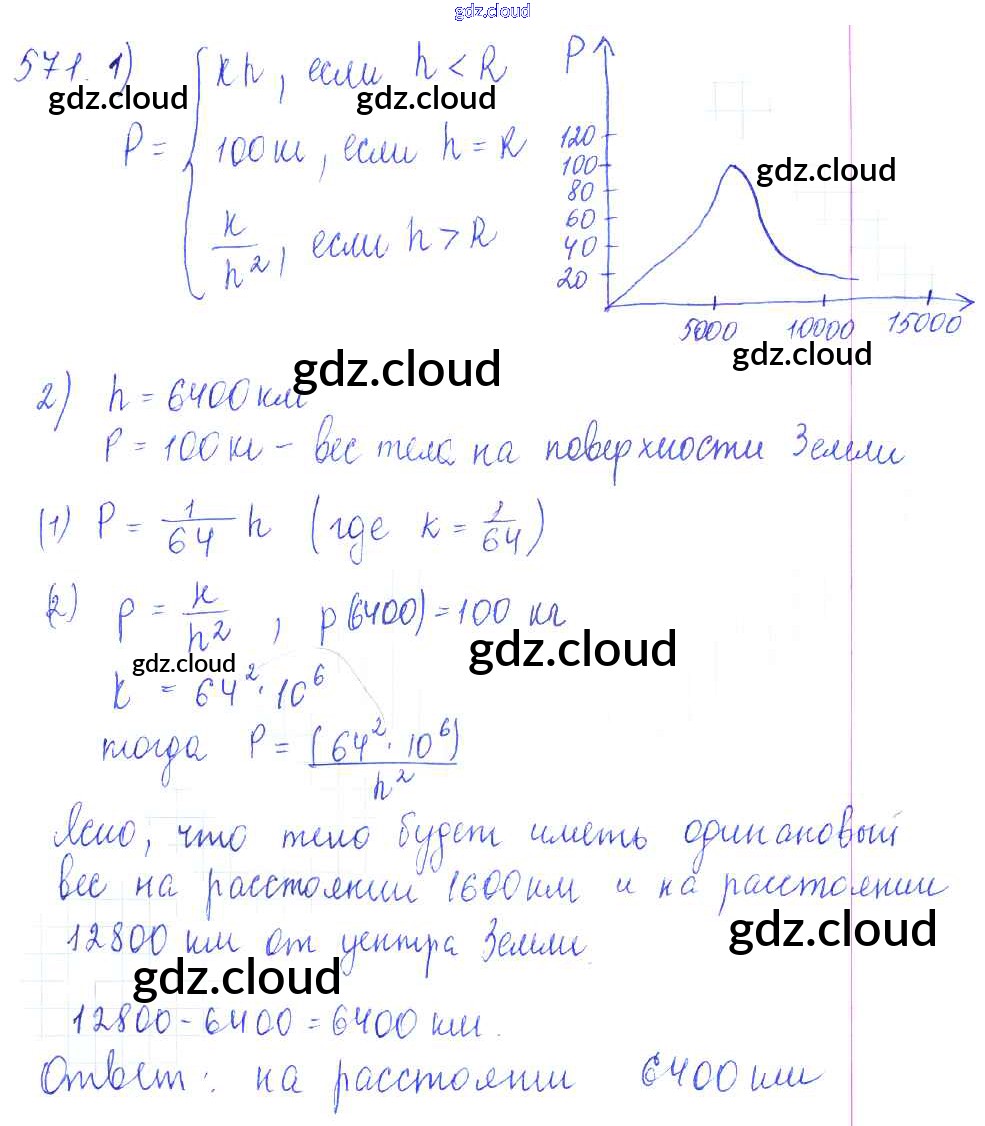 gdz.cloud
571. 1)
P = { kh, если h < R
100 кг, если h = R
k/h², если h > R
gdz.cloud gdz.cloud
P
120
100
80
60
40
20
5000 10000 15000
gdz.cloud
gdz.cloud
gdz.cloud
2) h = 6400 км
P = 100 кг – вес тела на поверхности Земли
(1) P = 1/64 h (где k = 1/64)
(2) P = k/h², p(6400) = 100 кг
gdz.cloud
gdz.cloud
k = 64² · 10⁶
тогда P = (64² · 10⁶)/h²
Ясно, что тело будет иметь одинаковый
вес на расстоянии 1600 км и на расстоянии
12800 км от центра Земли.
gdz.cloud
gdz.cloud
12800 – 6400 = 6400 км.
Ответ: на расстоянии 6400 км